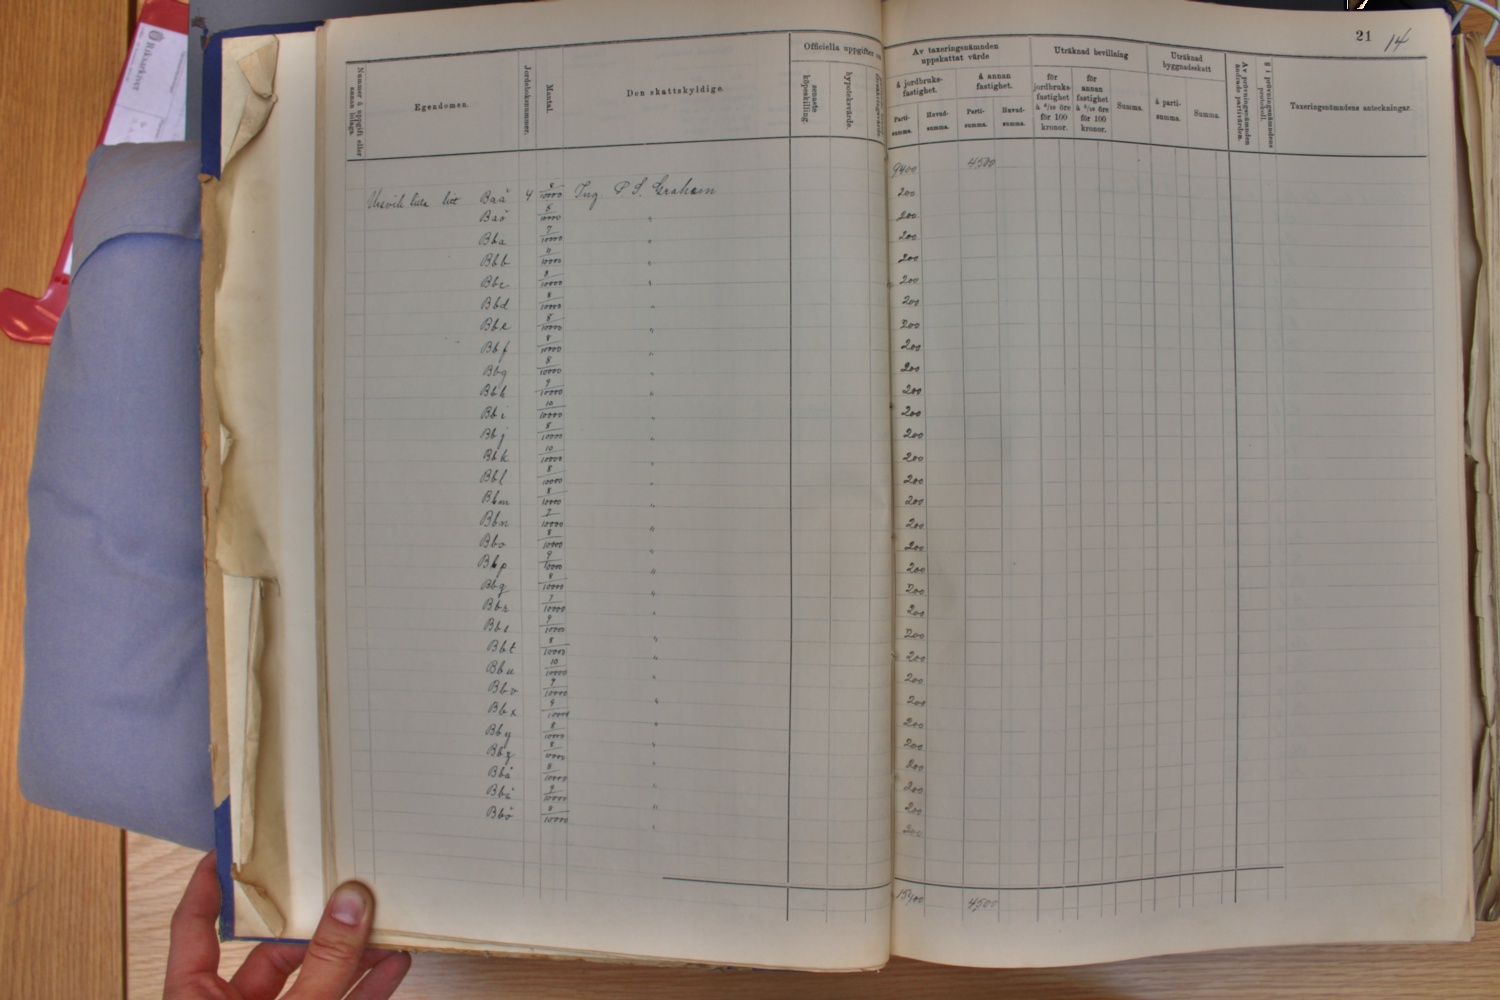 Riksarkivet
21 14
Nummer å uppgift eller annan bilaga.
Egendomen.
Jordeboksnummer.
Mantal.
Den skattskyldige.
Officiella uppgifter
senaste köpeskilling.
hypoteksvärde.
Av taxeringsnämnden uppskattat värde
å jordbruksfastighet.
å annan fastighet.
Parti-summa.
Huvud-summa.
Parti-summa.
Huvud-summa.
Uträknad bevillning
för jordbruksfastighet
för 100 kronor.
för annan fastighet
för 100 kronor.
Summa.
Uträknad byggnadsskatt
å parti-summa.
Summa.
Av prövningsnämnden ändrade partivärden.
§ i prövningsnämndens protokoll.
Taxeringsnämndens anteckningar.
9400 4500
litt Baä 4 8/10000 Ing. Graham 200
Baö 8/10000 " 200
Bba 7/10000 " 200
Bbb 11/10000 " 200
Bbc 8/10000 " 200
Bbd 8/10000 " 200
Bbe 8/10000 " 200
Bbf 8/10000 " 200
Bbg 8/10000 " 200
Bbh 9/10000 " 200
Bbi 10/10000 " 200
Bbj 8/10000 " 200
Bbk 10/10000 " 200
Bbl 8/10000 " 200
Bbm 8/10000 " 200
Bbn 7/10000 " 200
Bbo 8/10000 " 200
Bbp 9/10000 " 200
Bbq 8/10000 " 200
Bbr 7/10000 " 200
Bbs 9/10000 " 200
Bbt 8/10000 " 200
Bbu 10/10000 " 200
Bbv 9/10000 " 200
Bbx 9/10000 " 200
Bby 8/10000 " 200
Bbz 8/10000 " 200
Bbå 8/10000 " 200
Bbä 9/10000 " 200
Bbö 8/10000 " 200
15400 4500